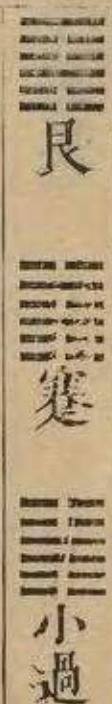 艮
蹇
小
過